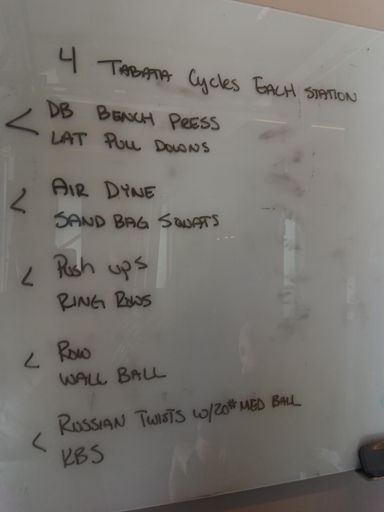 4 TABATA Cycles EACH STATION
< DB BENCH PRESS
LAT PULL DOWNS
< AIR DYNE
SAND BAG SQUATS
< Push ups
RING ROWS
< ROW
WALL BALL
< RUSSIAN TWISTS W/20# MED BALL
KBS